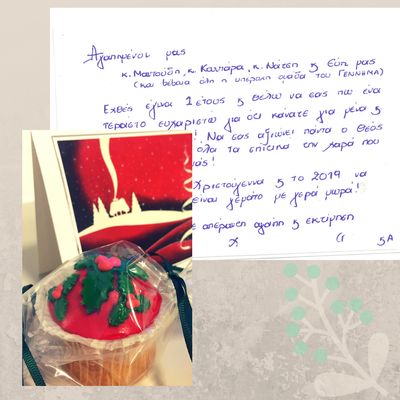 Αγαπημένοι μας
κ. Μαντούδη, κ. Καντάρα, κ. Νάτση & Εύη μας
(και βέβαια όλη η υπέροχη ομάδα του ΓΕΝΝΗΜΑ)
Εχθές έγινα 1 έτους & θέλω να σας πω ένα
τεράστιο ευχαριστώ για ότι κάνατε για μένα &
! Να σας αξιώνει πάντα ο Θεός
όλα τα σπίτια την χαρά που
Χριστούγεννα & το 2019 να
είναι γεμάτο με γερά μωρά!
απέραντη αγάπη & εκτίμηση